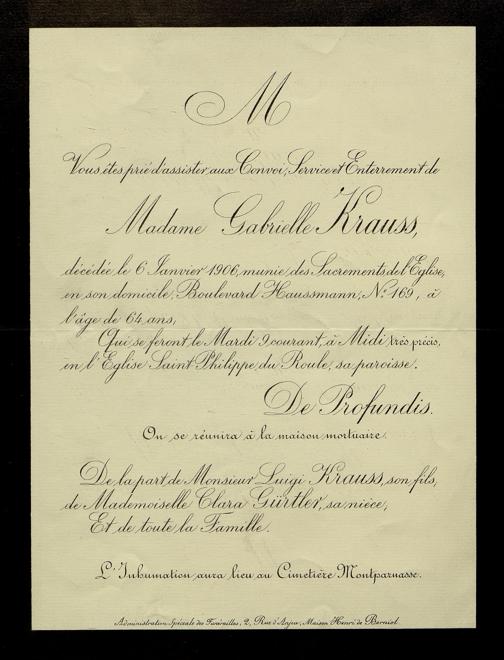 M
Vous êtes prié d'assister aux Convoi, Service et Enterrement de
Madame Gabrielle Krauss,
décédée le 6 Janvier 1906, munie des Sacrements de l'Eglise,
en son domicile, Boulevard Haussmann, N.º 169, à
l'âge de 64 ans,
Qui se feront le Mardi 9 courant, à Midi très précis,
en l'Eglise Saint Philippe du Roule, sa paroisse.
De Profundis.
On se réunira à la maison mortuaire.
De la part de Monsieur Luigi Krauss, son fils,
de Mademoiselle Clara Gürtler, sa nièce,
Et de toute la Famille.
L'Inhumation aura lieu au Cimetière Montparnasse.
Administration Spéciale des Funérailles, 2, Rue d'Anjou, Maison Henri de Borniol.